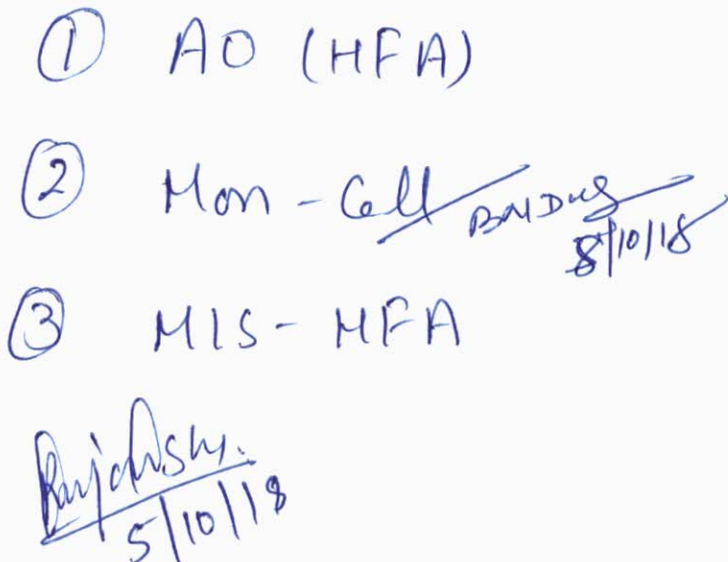 ① AO (HFA)
② Mon - Cell
8/10/18
③ MIS - HFA
5/10/18